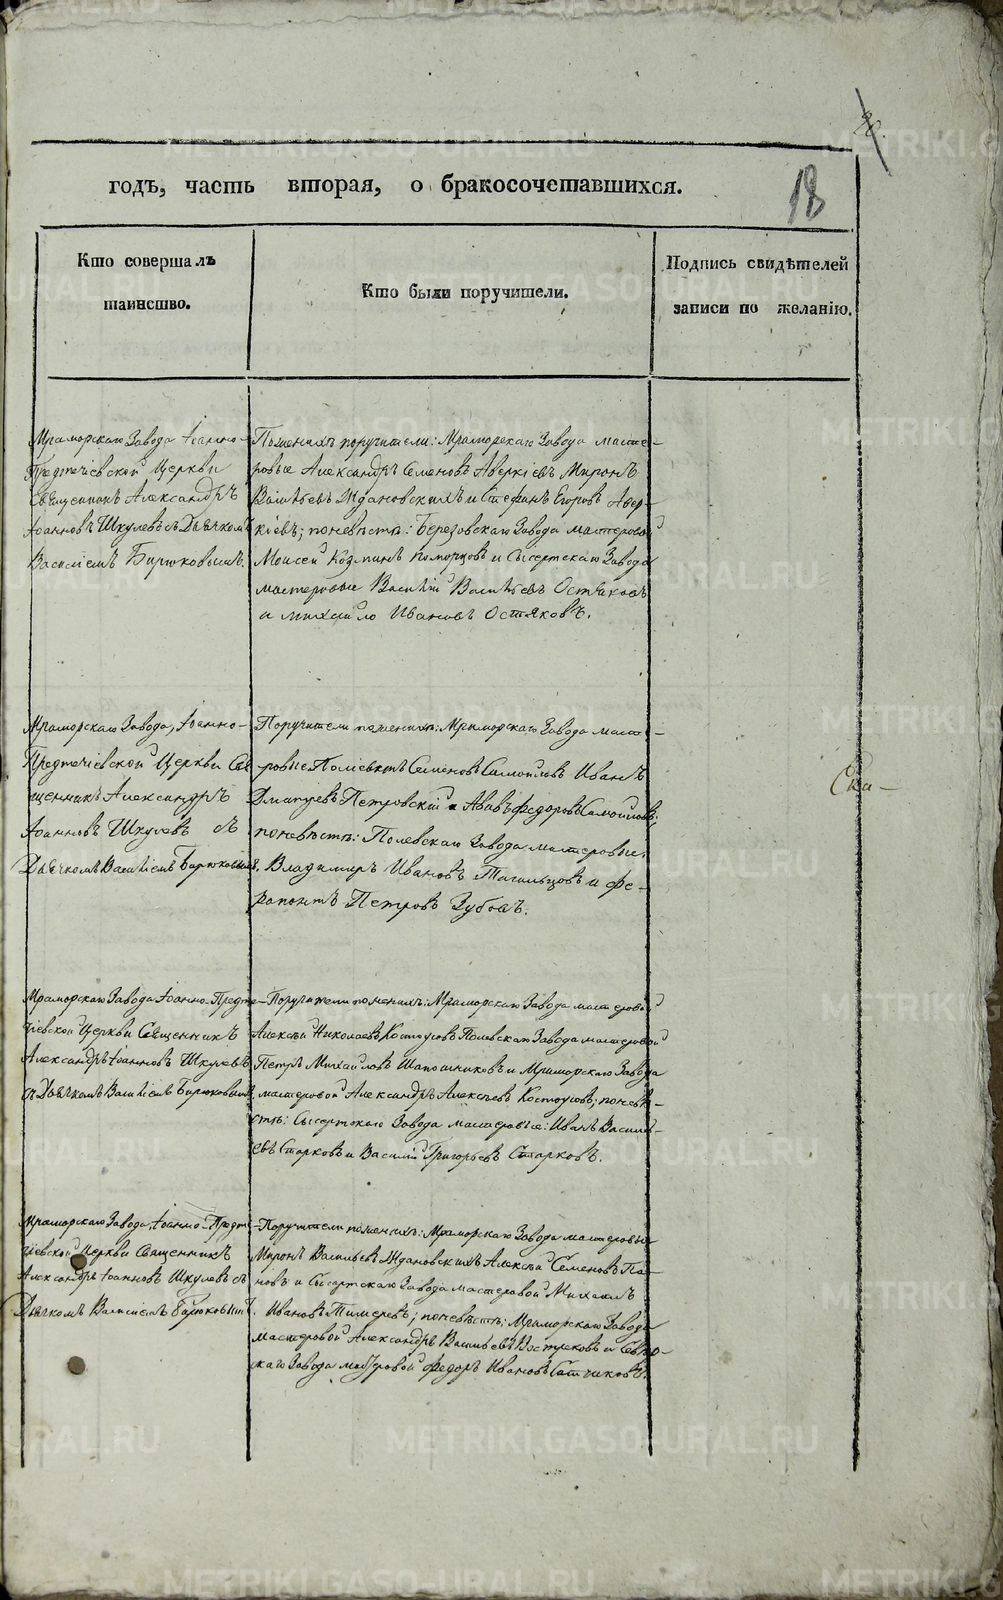 18
годъ, часть вторая, о бракосочетавшихся.
Кто совершалъ
таинство.
Кто были поручители.
Подпись свидѣтелей
записи по желанію.
Мраморскаго Завода Іоанно-
Предтечіевской Церкви
Священникъ Александръ
Іоанновъ Шкулевъ съ Дьячкомъ
Василіемъ Бирюковымъ.
По женихѣ поручители: Мраморскаго Завода масте-
ровые Александръ Семеновъ Аверкіевъ Миронъ
Васильевъ Ждановскихъ и Стефанъ Егоровъ Авер-
кіевъ; по невѣстѣ: Березовскаго Завода мастеровой
Моисей Козминъ Поморцовъ и Сысертскаго Завода
мастеровые Василій Васильевъ Остяковъ
и Михайло Ивановъ Остяковъ.
Мраморскаго Завода, Іоанно-
Предтечіевской Церкви Свя
щенникъ Александръ
Іоанновъ Шкулевъ съ
Дьячкомъ Василіемъ Бирюковымъ.
Поручители по женихѣ: Мраморскаго Завода масте-
ровые Поліевктъ Семеновъ Самойловъ Иванъ
Дмитріевъ Петровскій и Авивъ Федоровъ Самойловъ;
по невѣстѣ: Полевскаго Завода мастеровые,
Владимиръ Ивановъ Тагильцовъ и Фе-
рапонтъ Петровъ Зубовъ.
Ска-
Мраморскаго Завода Іоанно-Предте-
чіевской Церкви Священникъ
Александръ Іоанновъ Шкулевъ
съ Дьячкомъ Василіемъ Бирюковымъ.
Поручители по женихѣ: Мраморскаго Завода мастеровой
Алексѣй Николаевъ Костоусовъ Полевскаго Завода мастеровой
Петръ Михайловъ Шапошниковъ и Мраморскаго Завода
мастеровой Александръ Алексѣевъ Костоусовъ; по невѣ-
стѣ: Сысертскаго Завода мастеровые: Иванъ Василь-
евъ Старковъ и Василій Григорьевъ Старковъ.
Мраморскаго Завода, Іоанно-Предте
чіевской Церкви Священникъ
Александръ Іоанновъ Шкулевъ съ
Дьячкомъ Василіемъ Бирюковымъ.
Поручители по женихѣ: Мраморскаго Завода мастеровые
Миронъ Васильевъ Ждановскихъ Алексѣй Семеновъ Па-
новъ и Сысертскаго Завода мастеровой Михаилъ
Ивановъ; по невѣстѣ: Мраморскаго Завода
мастеровой Александръ Васильевъ Востряковъ и
скаго Завода мастеровой Федоръ Ивановъ
METRIKI.GASO-URAL.RU